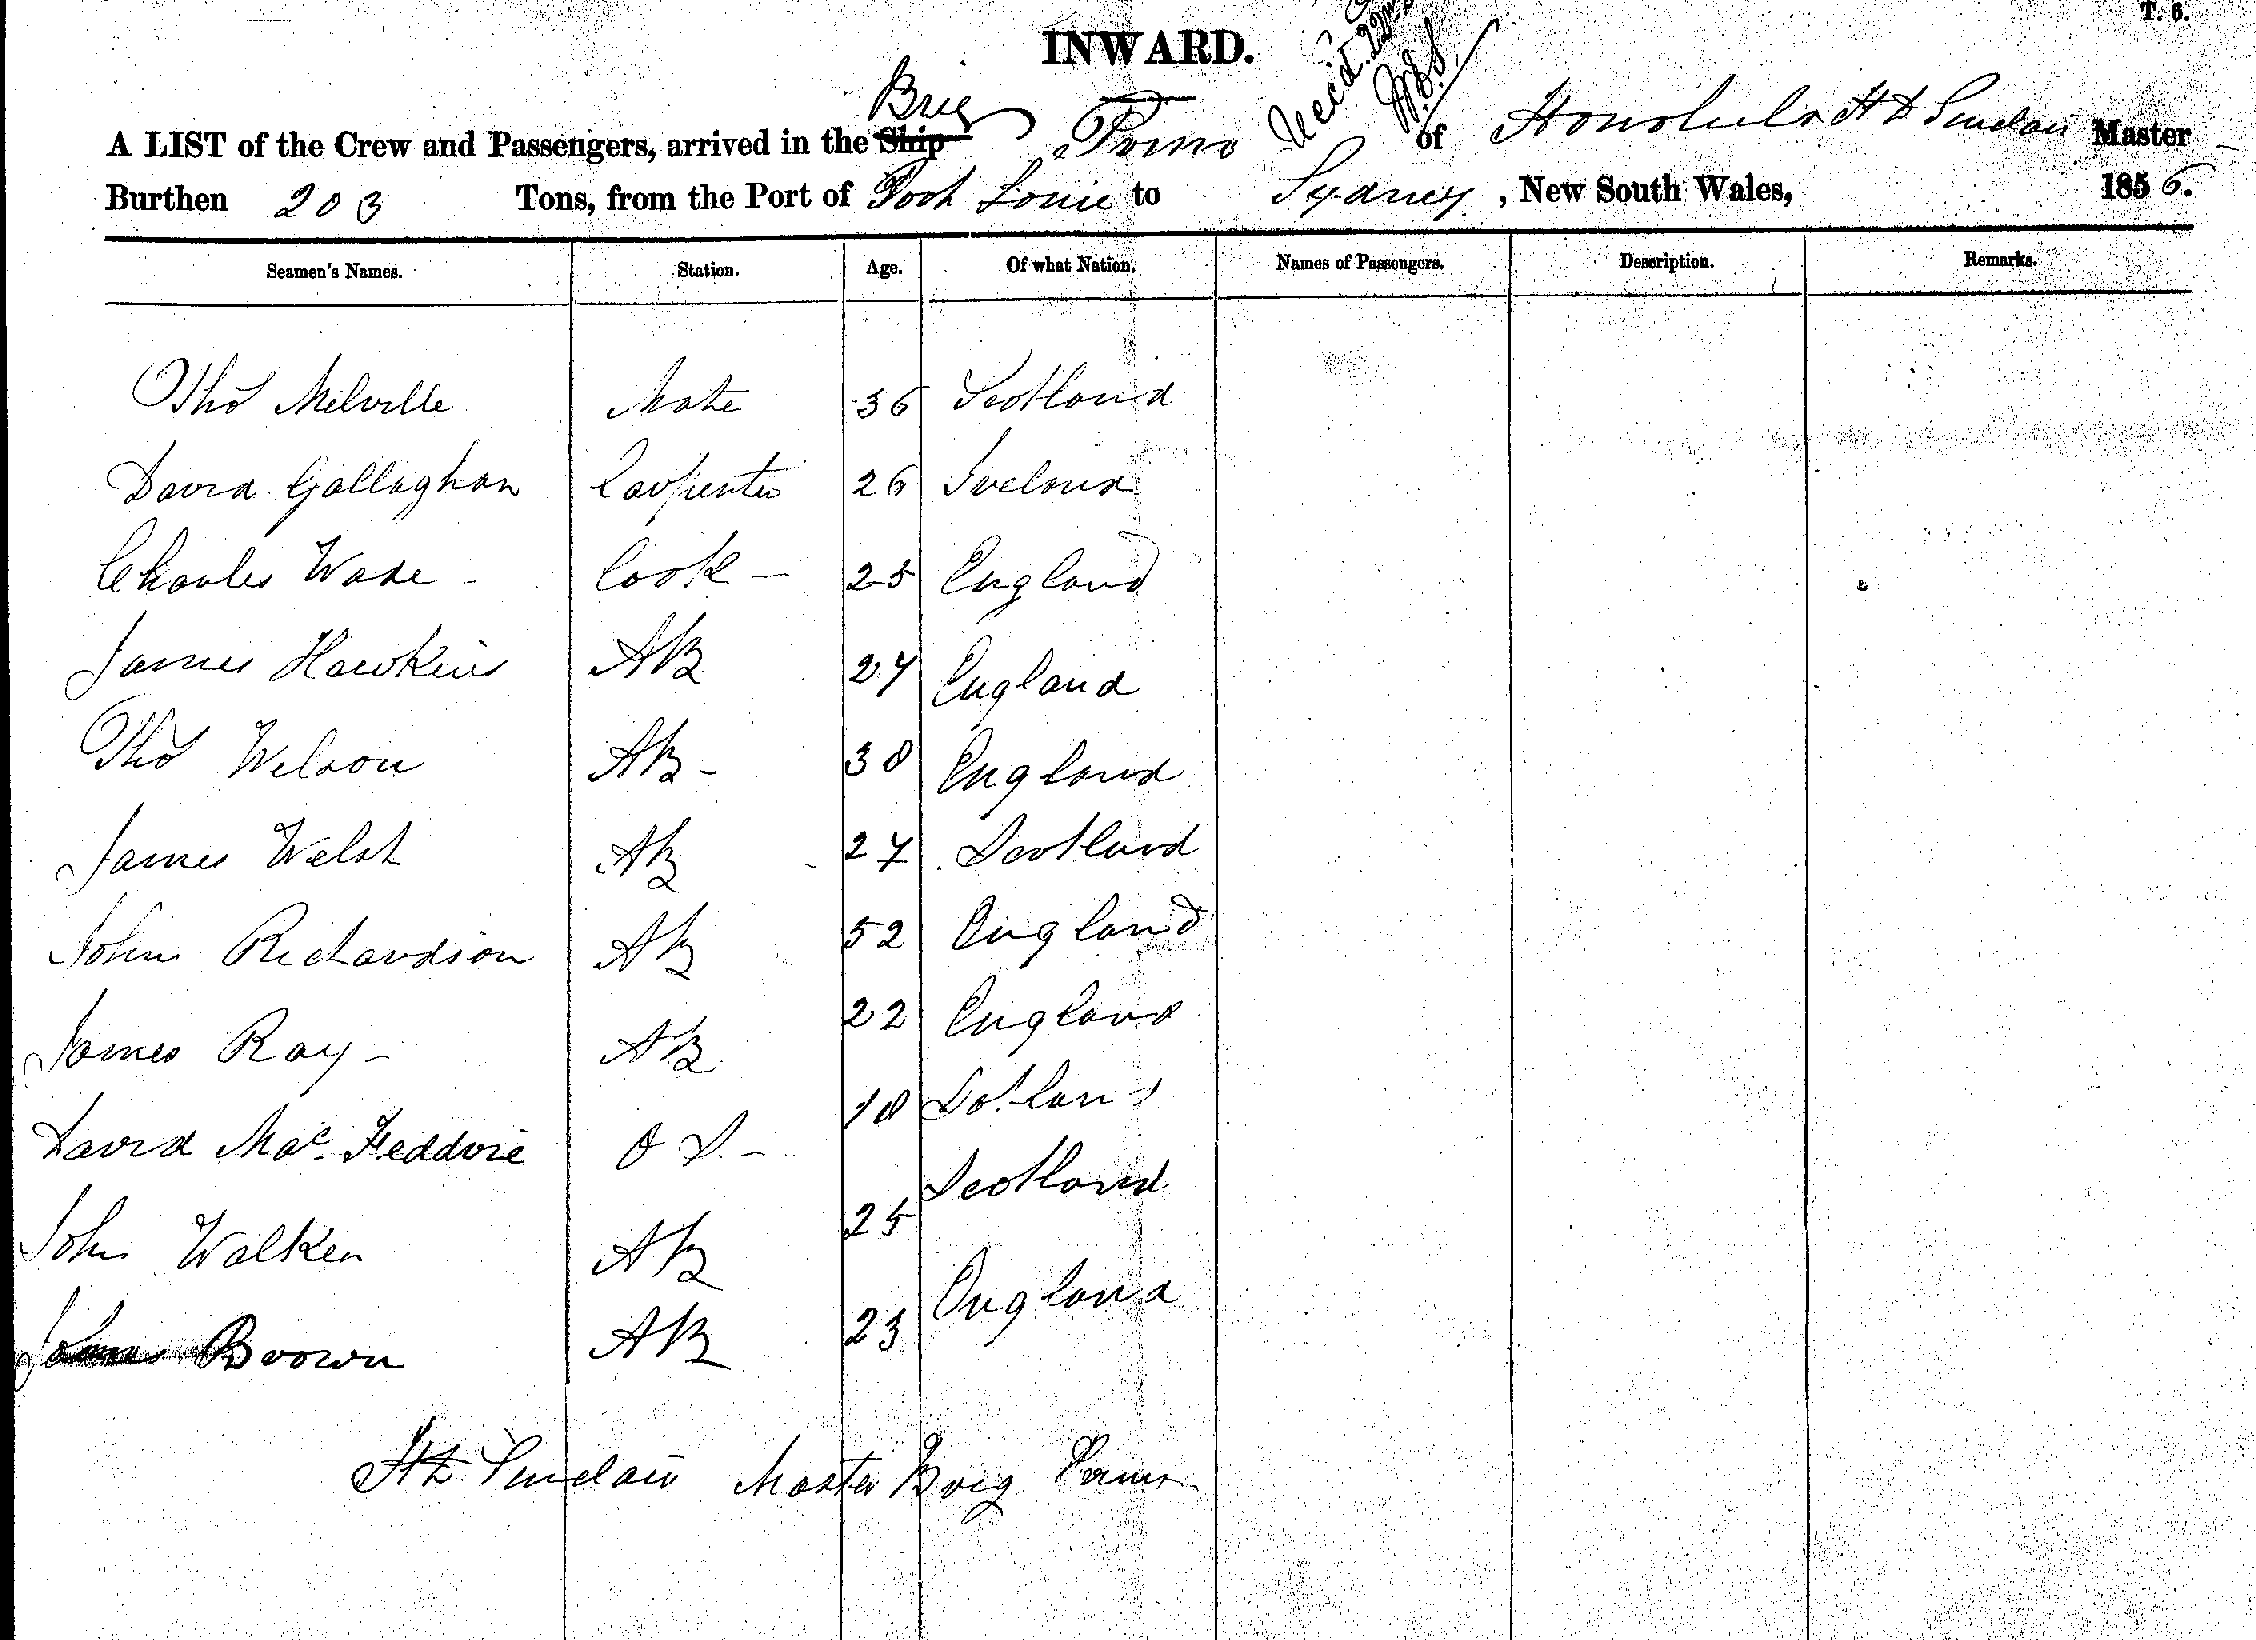 T. 6.
INWARD.
Recd. 22nd
Brig
A LIST of the Crew and Passengers, arrived in the Ship of Honolulu H D Sinclair Master
Burthen 203 Tons, from the Port of Port Louis to Sydney, New South Wales, 1856.
Seamen's Names. Station. Age. Of what Nation. Names of Passengers. Description. Remarks.
Thos Melville Mate 36 Scotland
David Gallaghan Carpenter 26 Ireland
Charles Wade - Cook - 25 England
James Hawkins AB 27 England
Thos Wilson AB - 30 England
James Welsh AB 27 Scotland
John Richardson AB 52 England
James Ray - AB 22 England
David Mac. Feddrie O S. - 18 Scotland
John Walker AB 25 Scotland
Brown AB 23 England
H D Sinclair Master Brig